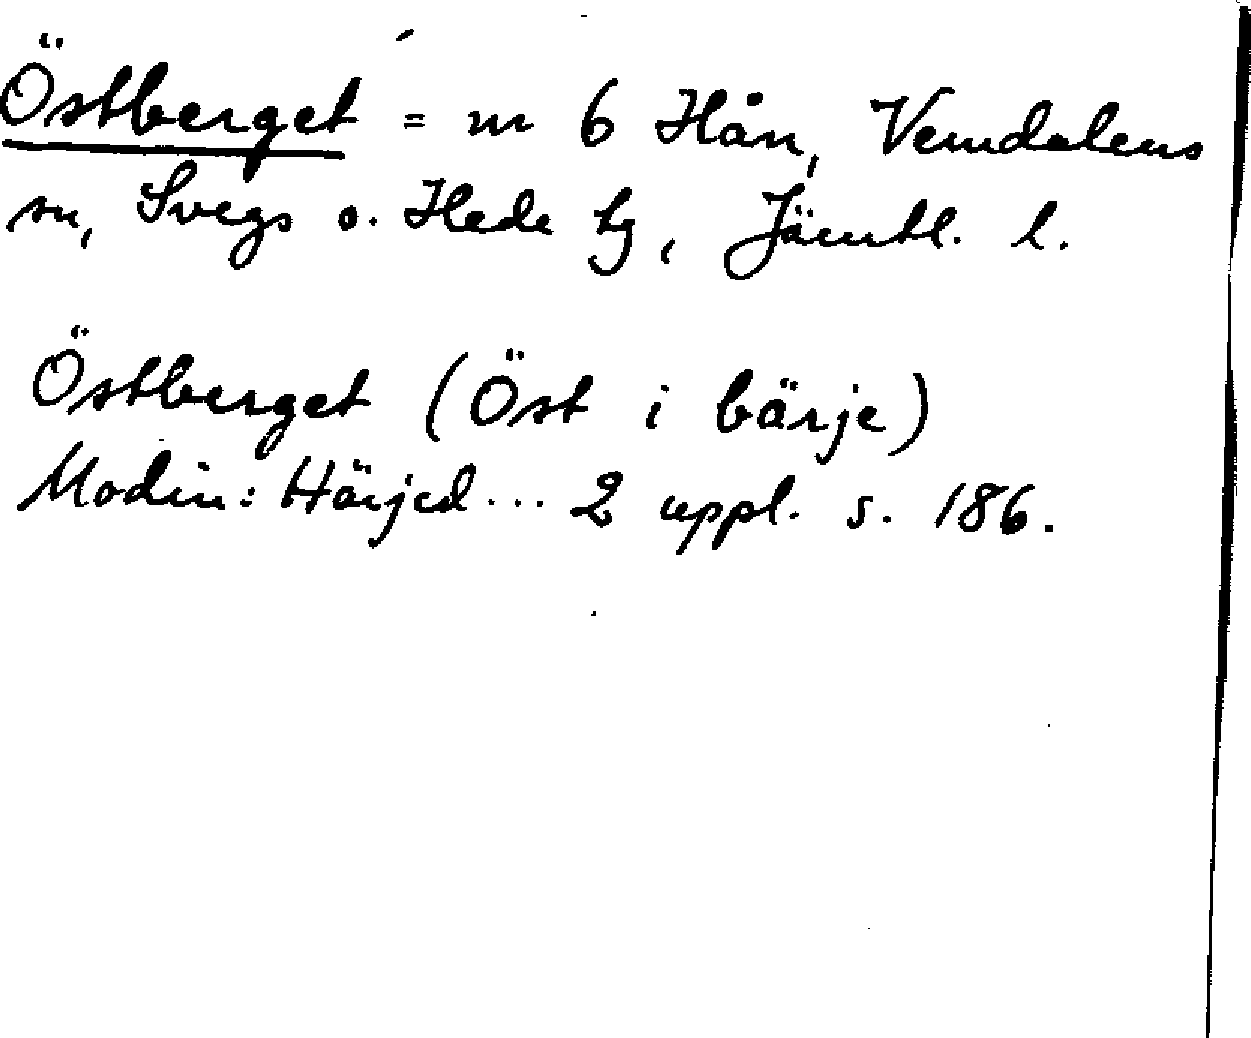 Östberget = nr 6 Hån, Vemdalens
sn, Svegs o. Hede tg, Jämtl. l.
Östberget (Öst i bärje)
Modin: Härjed... 2 uppl. s. 186.